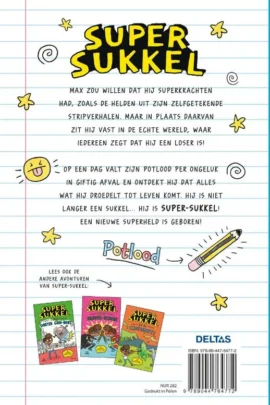 SUPER
SUKKEL
MAX ZOU WILLEN DAT HIJ SUPERKRACHTEN
HAD, ZOALS DE HELDEN UIT ZIJN ZELFGETEKENDE
STRIPVERHALEN. MAAR IN PLAATS DAARVAN
ZIT HIJ VAST IN DE ECHTE WERELD, WAAR
IEDEREEN ZEGT DAT HIJ EEN LOSER IS!
OP EEN DAG VALT ZIJN POTLOOD PER ONGELUK
IN GIFTIG AFVAL EN ONTDEKT HIJ DAT ALLES
WAT HIJ DROEDELT TOT LEVEN KOMT. HIJ IS NIET
LANGER EEN SUKKEL... HIJ IS SUPER-SUKKEL!
EEN NIEUWE SUPERHELD IS GEBOREN!
Potlood
LEES OOK DE
ANDERE AVONTUREN
VAN SUPER-SUKKEL:
SUPER
SUKKEL
SUPER
SUKKEL
SUPER
SUKKEL
DELTAS
NUR 282
Gedrukt in Polen
9 789044 764772